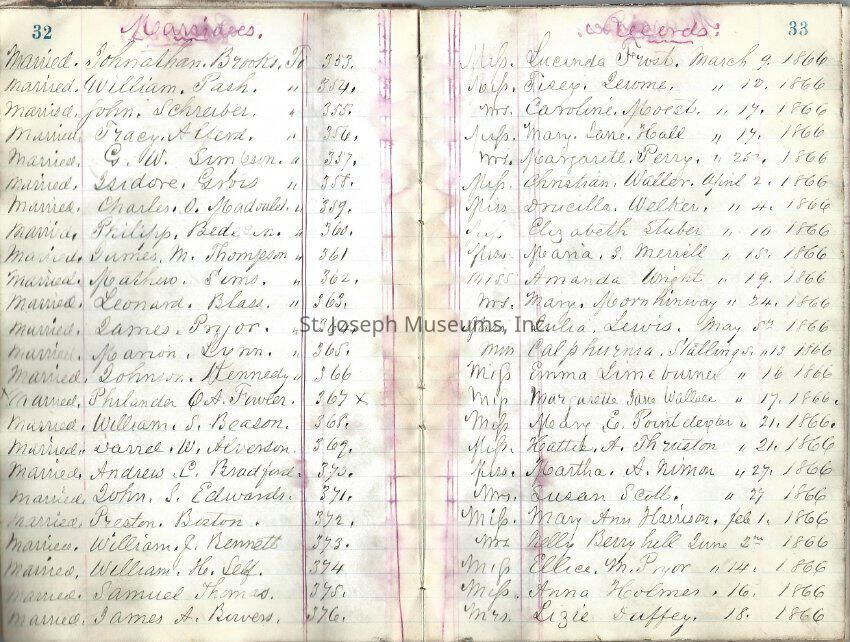 32 Marriages. Records: 33
Married. Johnathan. Brooks. To 353. Miss. Lucinda Frost. March 9. 1866
Married. William. Pash. " 354. Miss. Jerome. " 12. 1866
Married. John. Schreiber. " 355. Mrs. Caroline. Moest. " 17. 1866
Married. Tracy. Alferd. " 356. Miss. Mary. Jane. Hall " 17. 1866
Married. G. W. Simpson. " 357. Mrs. Margarett. Perry. " 25th. 1866
Married. Isidore. " 358. Miss. Christian. Waller. April 2. 1866
Married. Charles. O. " 359. Miss Drucilla. Welker. " 4. 1866
Married. Philipp. " 360. Elizabeth Stuber " 10 1866
Married. James. M. Thompson " 361 Miss. Maria. S. Merrill " 15. 1866
Married. Mathew. Sims. " 362. Miss Amanda Wright " 19. 1866
Married. Leonard. Blass. " 363. Mrs. Mary. " 24. 1866
Married. James. Pryor. " Julia. Lewis. May 5th 1866
Married. Marion. Lynn. " 365. Miss Calphurnia. Stallings. " 13 1866
Married. Johnson. Kennedy " 366 Miss Emma Limeburner " 16 1866
x Married. Philander C. A. Fowler. 367 x Miss Margarette Jane Wallace " 17. 1866.
Married. William. S. Beason. 368. Miss Mary E. Pointdexter " 21. 1866.
Married. Darrel. W. Alverson. 369. Miss. Hattie. A. Thruston " 21. 1866
Married. Andrew C. Bradford. 370. Miss. Martha. A. " 27. 1866
Married. John. S. Edwards. 371. Mrs. Susan Scott. " 27 1866
Married. Preston. Boston. 372. Miss. Mary Ann Harrison. Feb 1. 1866
Married. William. J. Bennett 373. Mrs Nelly Berryhill June 2nd 1866
Married. William. H. Self. 374 Miss Ellice. M. Pryor " 14. 1866
Married. Samuel Thomas. 375. Miss. Anna Holmes " 16. 1866
Married. James A. Bowers. 376. Mrs. Lizie Duffey. 18. 1866
St. Joseph Museums, Inc.